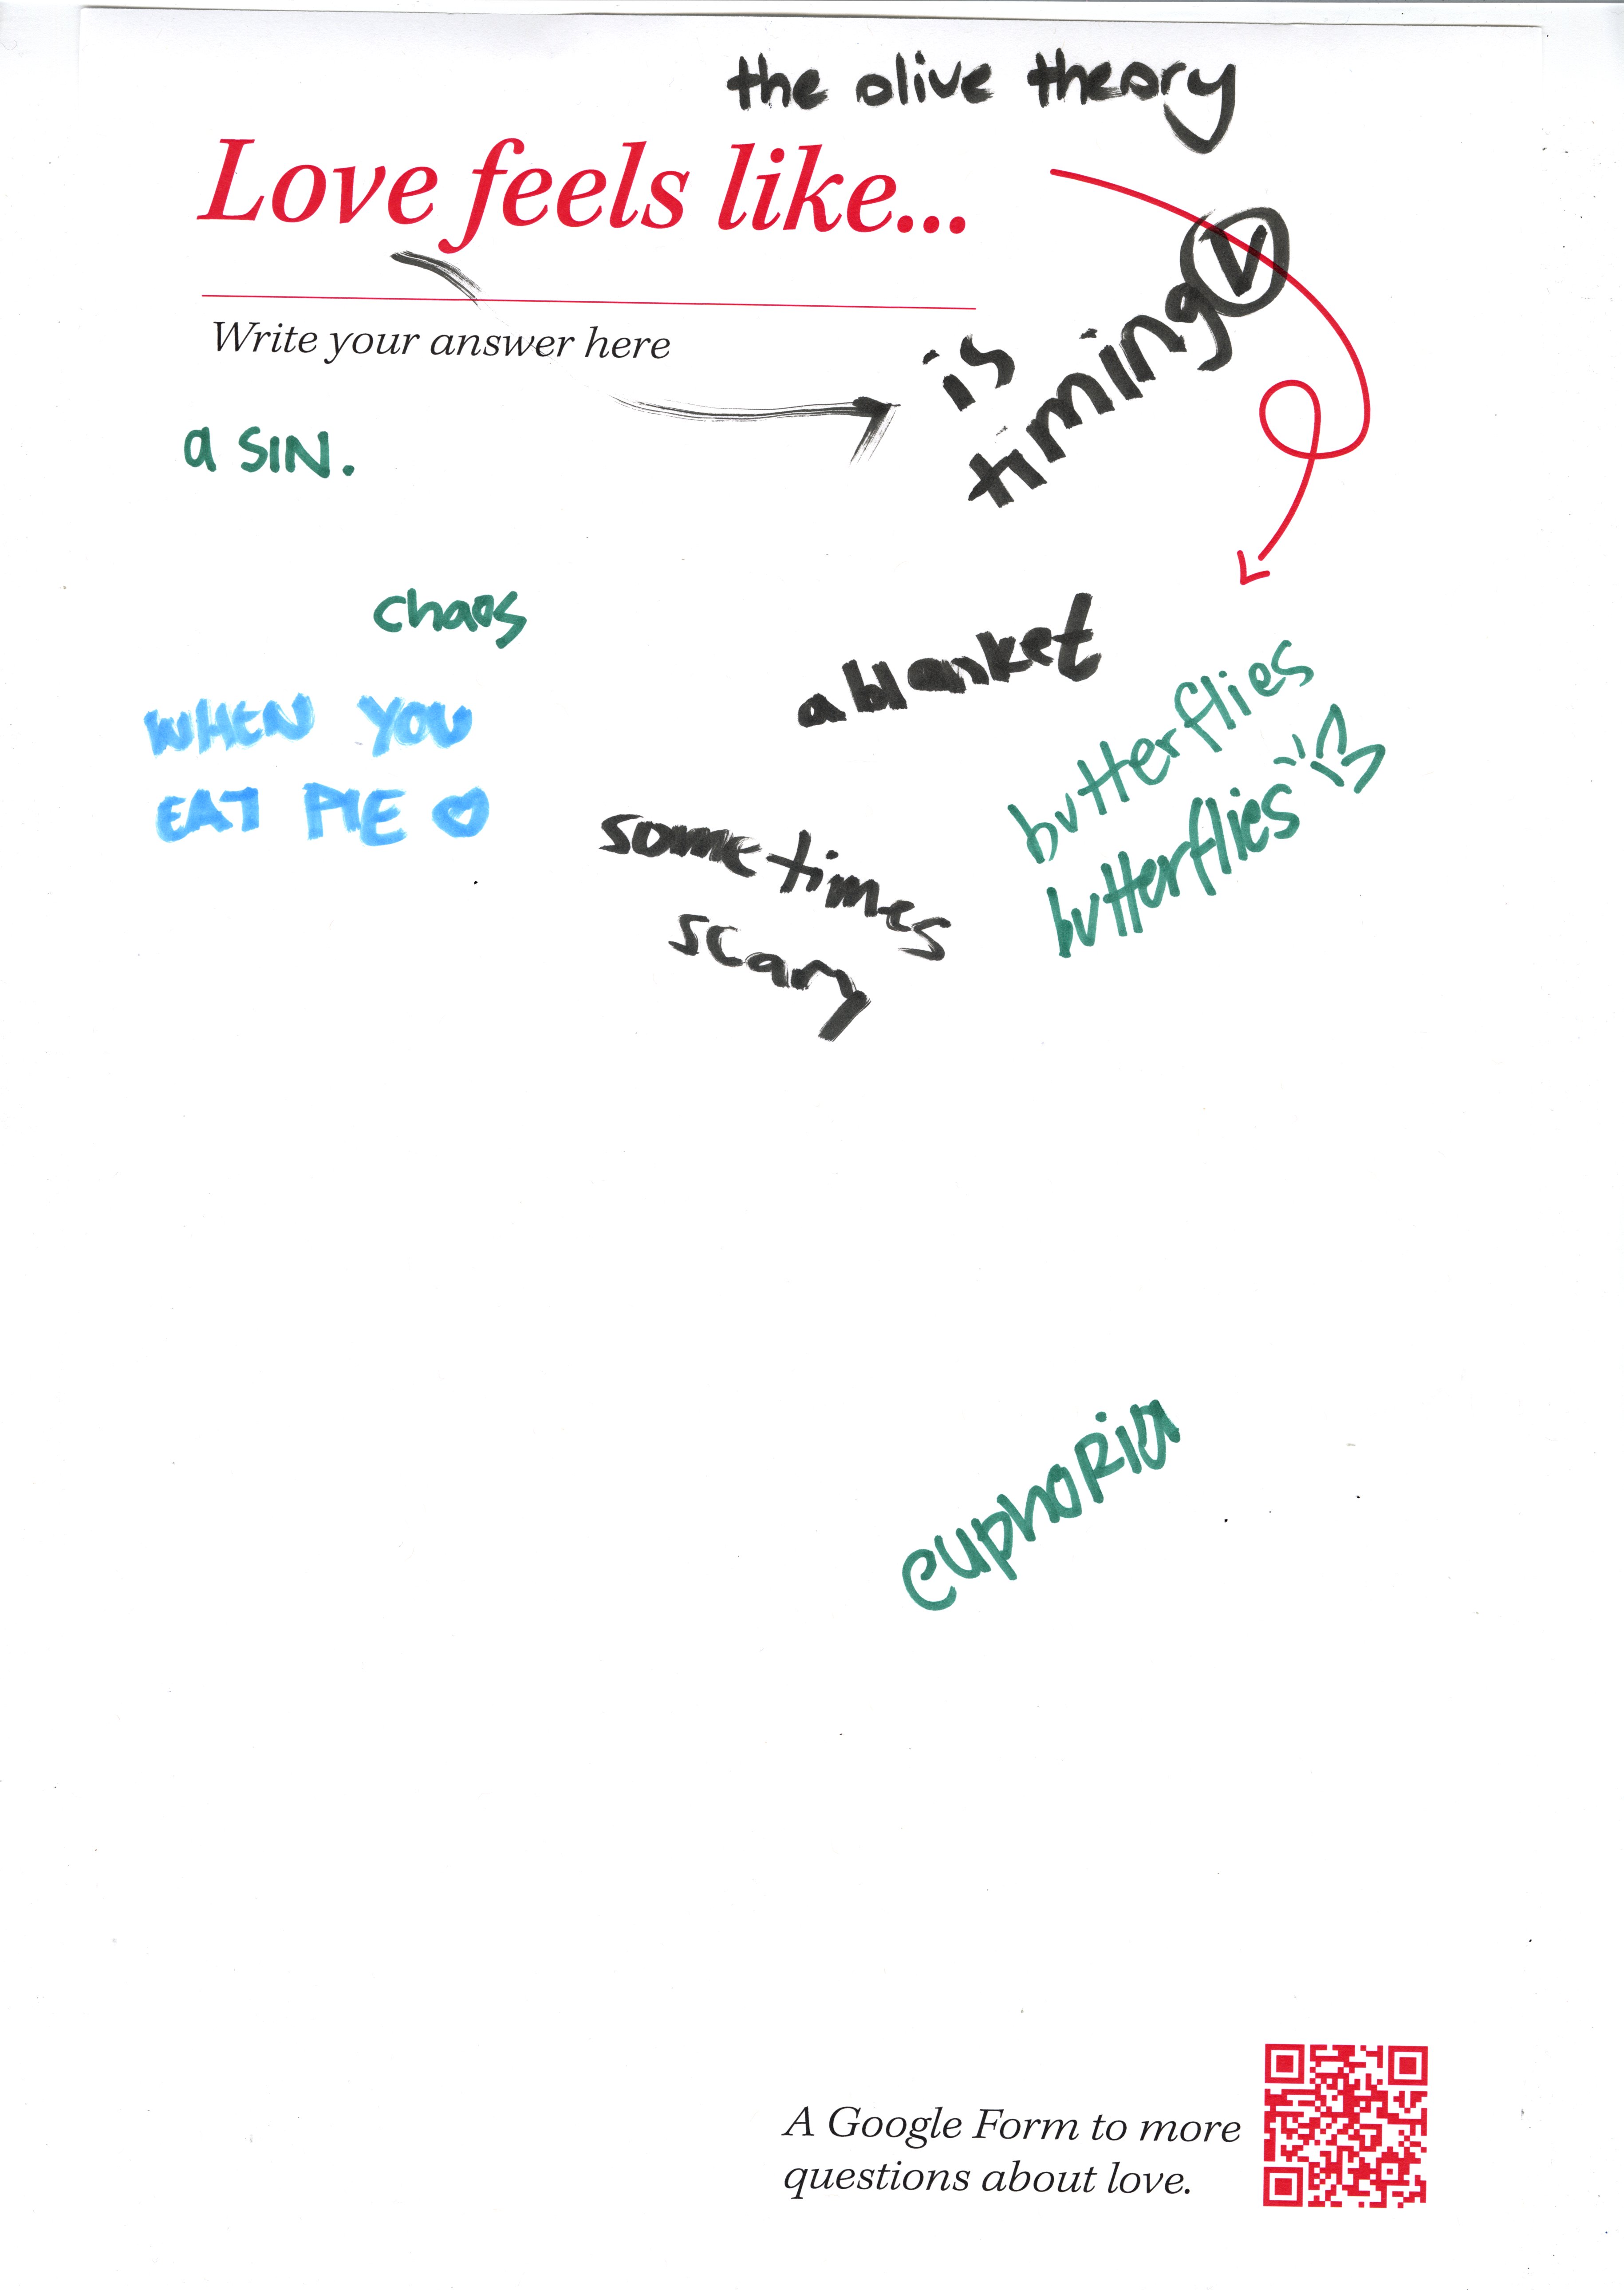 the olive theory
Love feels like...
Write your answer here
is
timing V
a SIN.
chaos
a blanket
WHEN YOU
EAT PIE
butterflies
butterflies
sometimes
scary
euphoria
A Google Form to more
questions about love.